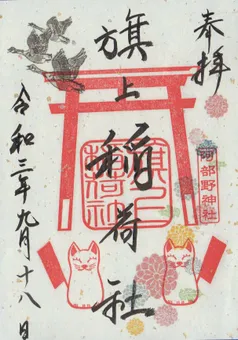 奉拝
阿部野神社
旗上稲荷社
旗上稲荷社
令和三年九月十八日